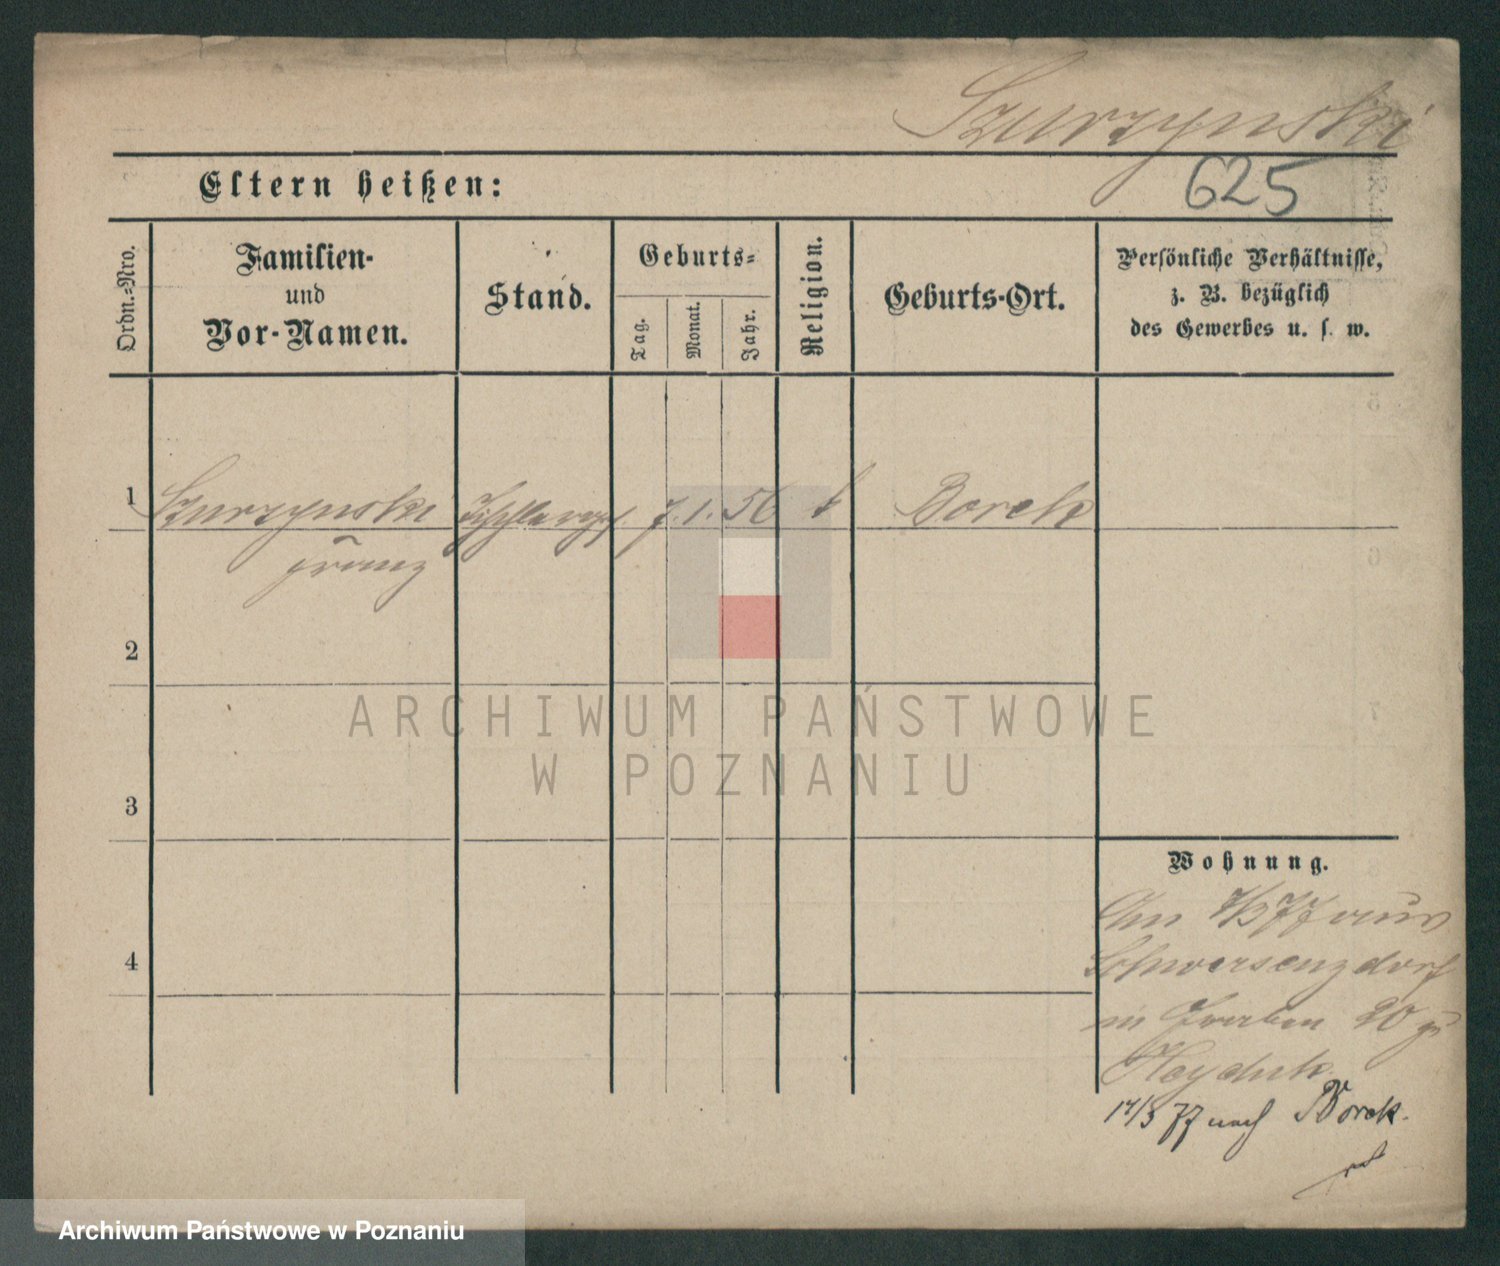 Szurzynski
625
Eltern heißen:
Ordn.-Nro.
Familien-
und
Vor-Namen.
Stand.
Geburts-
Tag.
Monat.
Jahr.
Religion.
Geburts-Ort.
Persönliche Verhältnisse,
z. B. bezüglich
des Gewerbes u. s. w.
1 Szurzynski Tischlerges. 7. 1. 56 k Borek
Franz
2
3
4
ARCHIWUM PAŃSTWOWE
W POZNANIU
Wohnung.
An 7/2 77 aus
Schwersenzdorf
in Graben 20 zu
Hayduk
14/3 77 nach Borek.
Archiwum Państwowe w Poznaniu